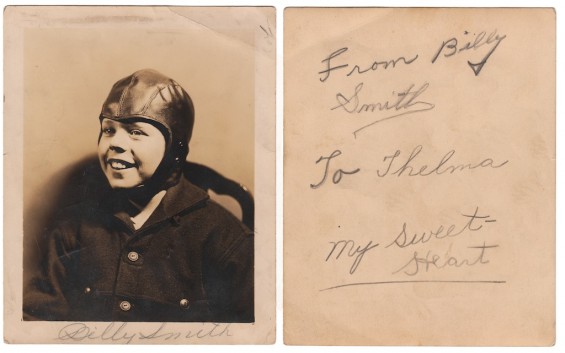 Billy Smith
From Billy
Smith
To Thelma
My Sweet-
Heart